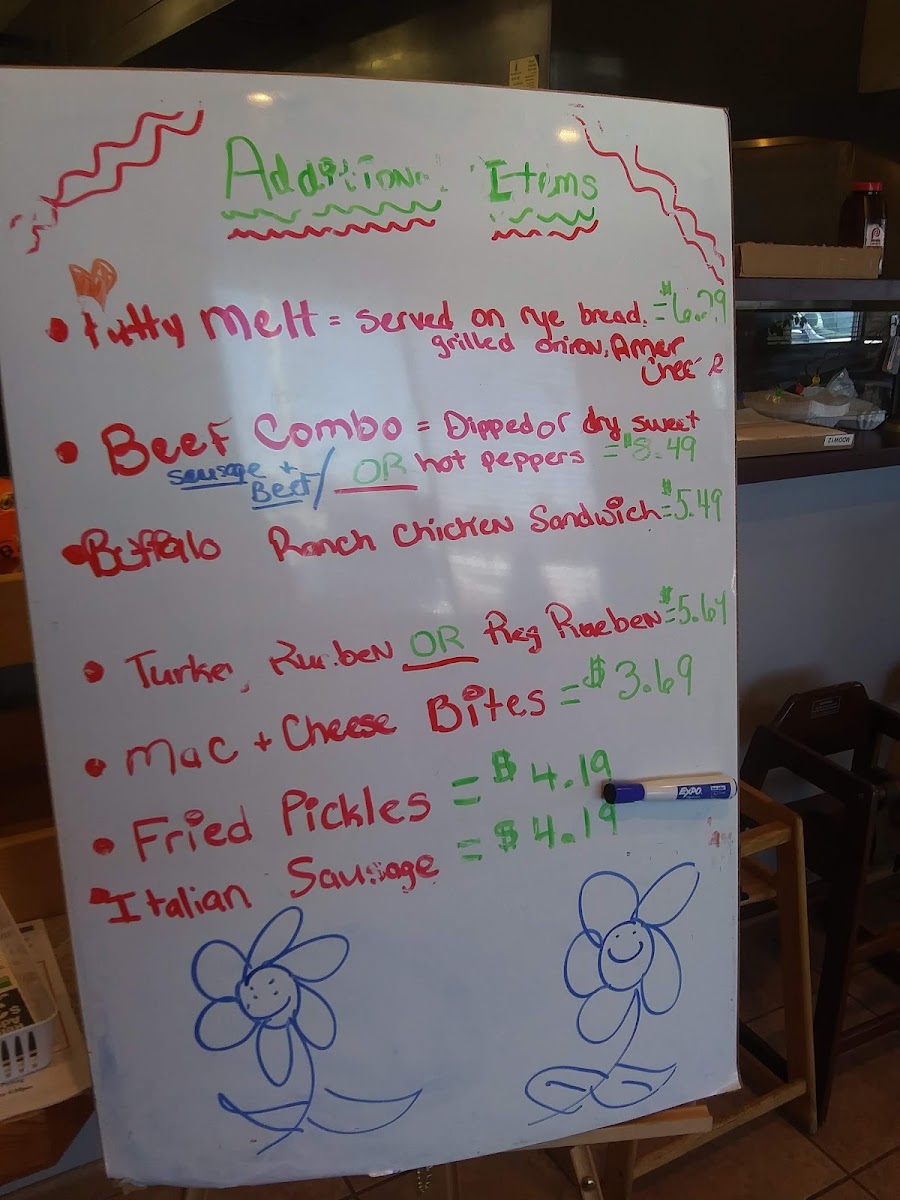 Additional Items
Putty Melt = served on rye bread. = $6.79
grilled onion, Amer
Beef Combo = Dipped or dry sweet
sausage + Beef / OR hot peppers = $8.49
Buffalo Ranch Chicken Sandwich = $5.49
Turkey OR Reg Rueben = $5.69
Mac + Cheese Bites = $3.69
Fried Pickles = $4.19
EXPO
Italian Sausage = $4.19